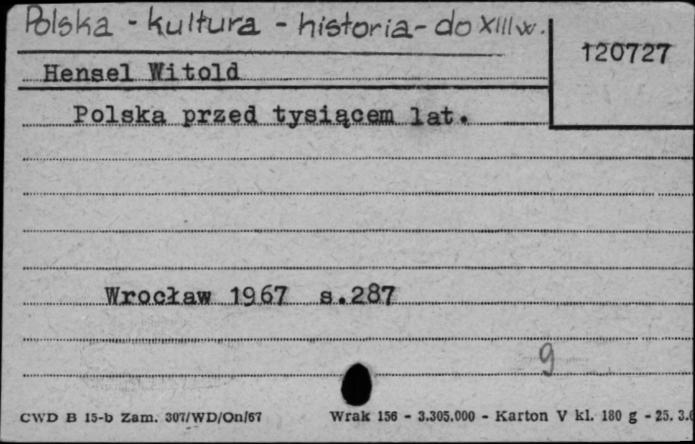 Polska - kultura - historia - do XIII w.
120727
Hensel Witold
Polska przed tysiącem lat.
Wrocław 1967 s.287
9
CWD B 15-b Zam. 307/WD/On/67 Wrak 156 - 3.305.000 - Karton V kl. 180 g - 25. 3.6